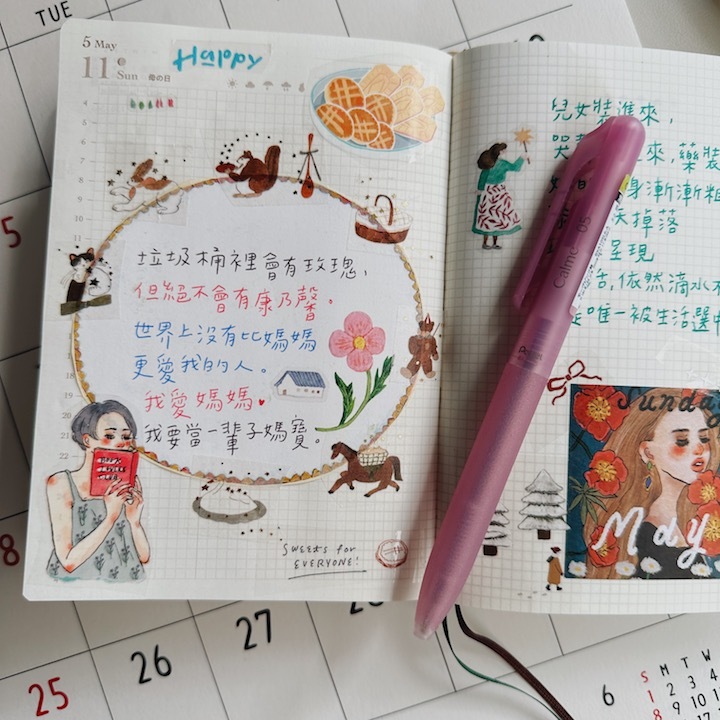 TUE
5 May
11
Sun 母の日
Happy
4
6
7
8
9
10
11
19
20
21
22
垃圾桶裡會有玫瑰、
但絕不會有康乃馨。
世界上沒有比媽媽
更愛我的人。
我愛媽媽♥
我要當一輩子媽寶。
SWEETS for
EVERYONE!
兒女裝進來,
來,藥裝
身漸漸粗
掉落
呈現
依然滴水不
唯一被生活選中
Calme 05
Pentel
Sunday
May
5
18
25
26
27
28
6
S M T W
1 2 3 4
8 9 10